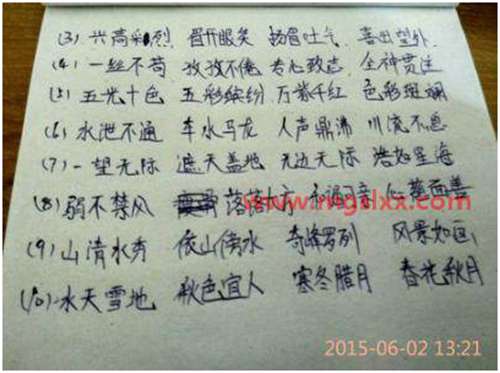 (3) 兴高彩烈 眉开眼笑 扬眉吐气 喜出望外
(4) 一丝不苟 孜孜不倦 专心致志 全神贯注
(5) 五光十色 五彩缤纷 万紫千红 色彩斑斓
(6) 水泄不通 车水马龙 人声鼎沸 川流不息
(7) 一望无际 遮天盖地 无边无际 浩如星海
(8) 弱不禁风 落落大方 慈面善
www.mgslxx.com
(9) 山清水秀 依山傍水 奇峰罗列 风景如画
(10) 水天雪地 秋色宜人 寒冬腊月 春花秋月
2015-06-02 13:21